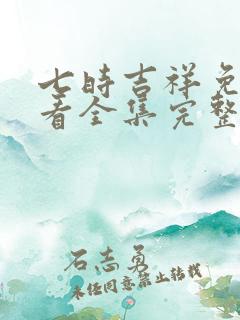 七时吉祥免
看全集完整
石志勇
未经同意禁止转载